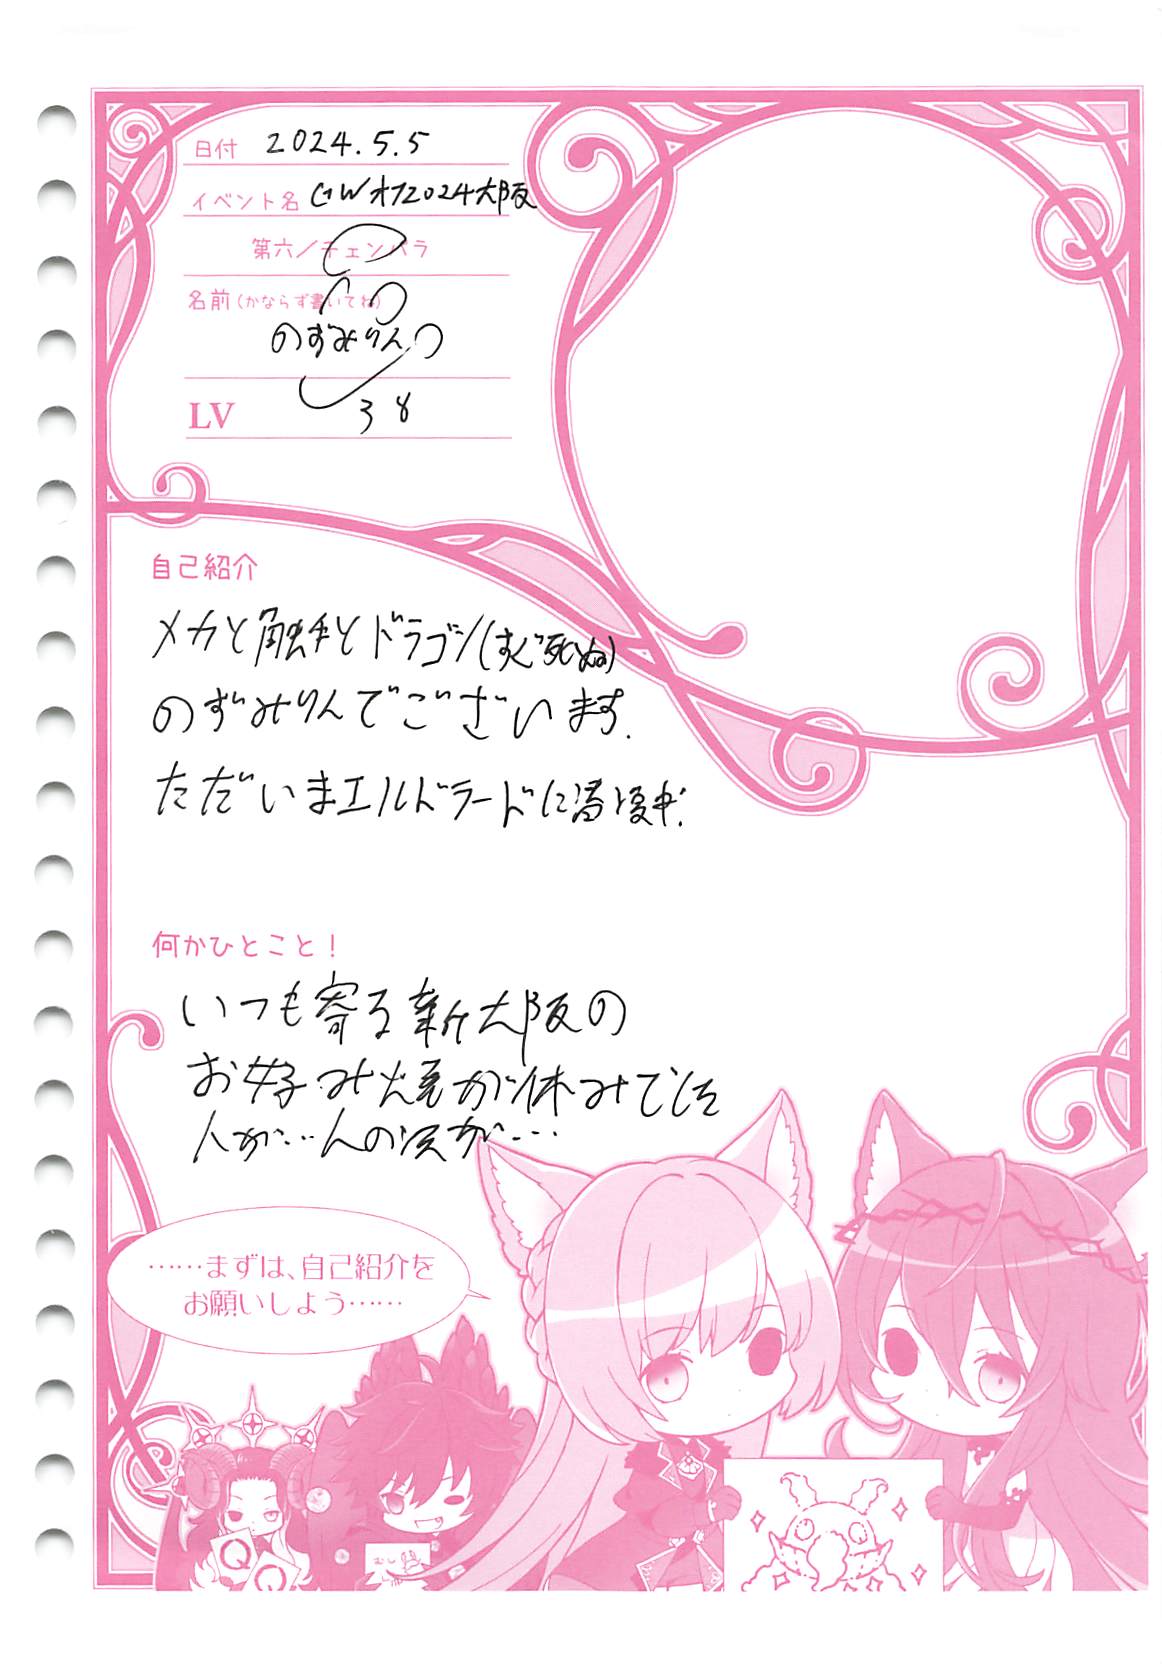 日付 2024.5.5
イベント名 GWオフ2024大阪
第六／チェンパラ
名前(かならず書いてね)
のずみりん
LV 38
自己紹介
メカと触手とドラゴン(すぐ死ぬ)
のずみりんでございます.
ただいまエルドラードに潜伏中.
何かひとこと！
いつも寄る新大阪の
お好み焼が休みでした
人が…人の波が…
……まずは、自己紹介を
お願いしよう……
Q
Q